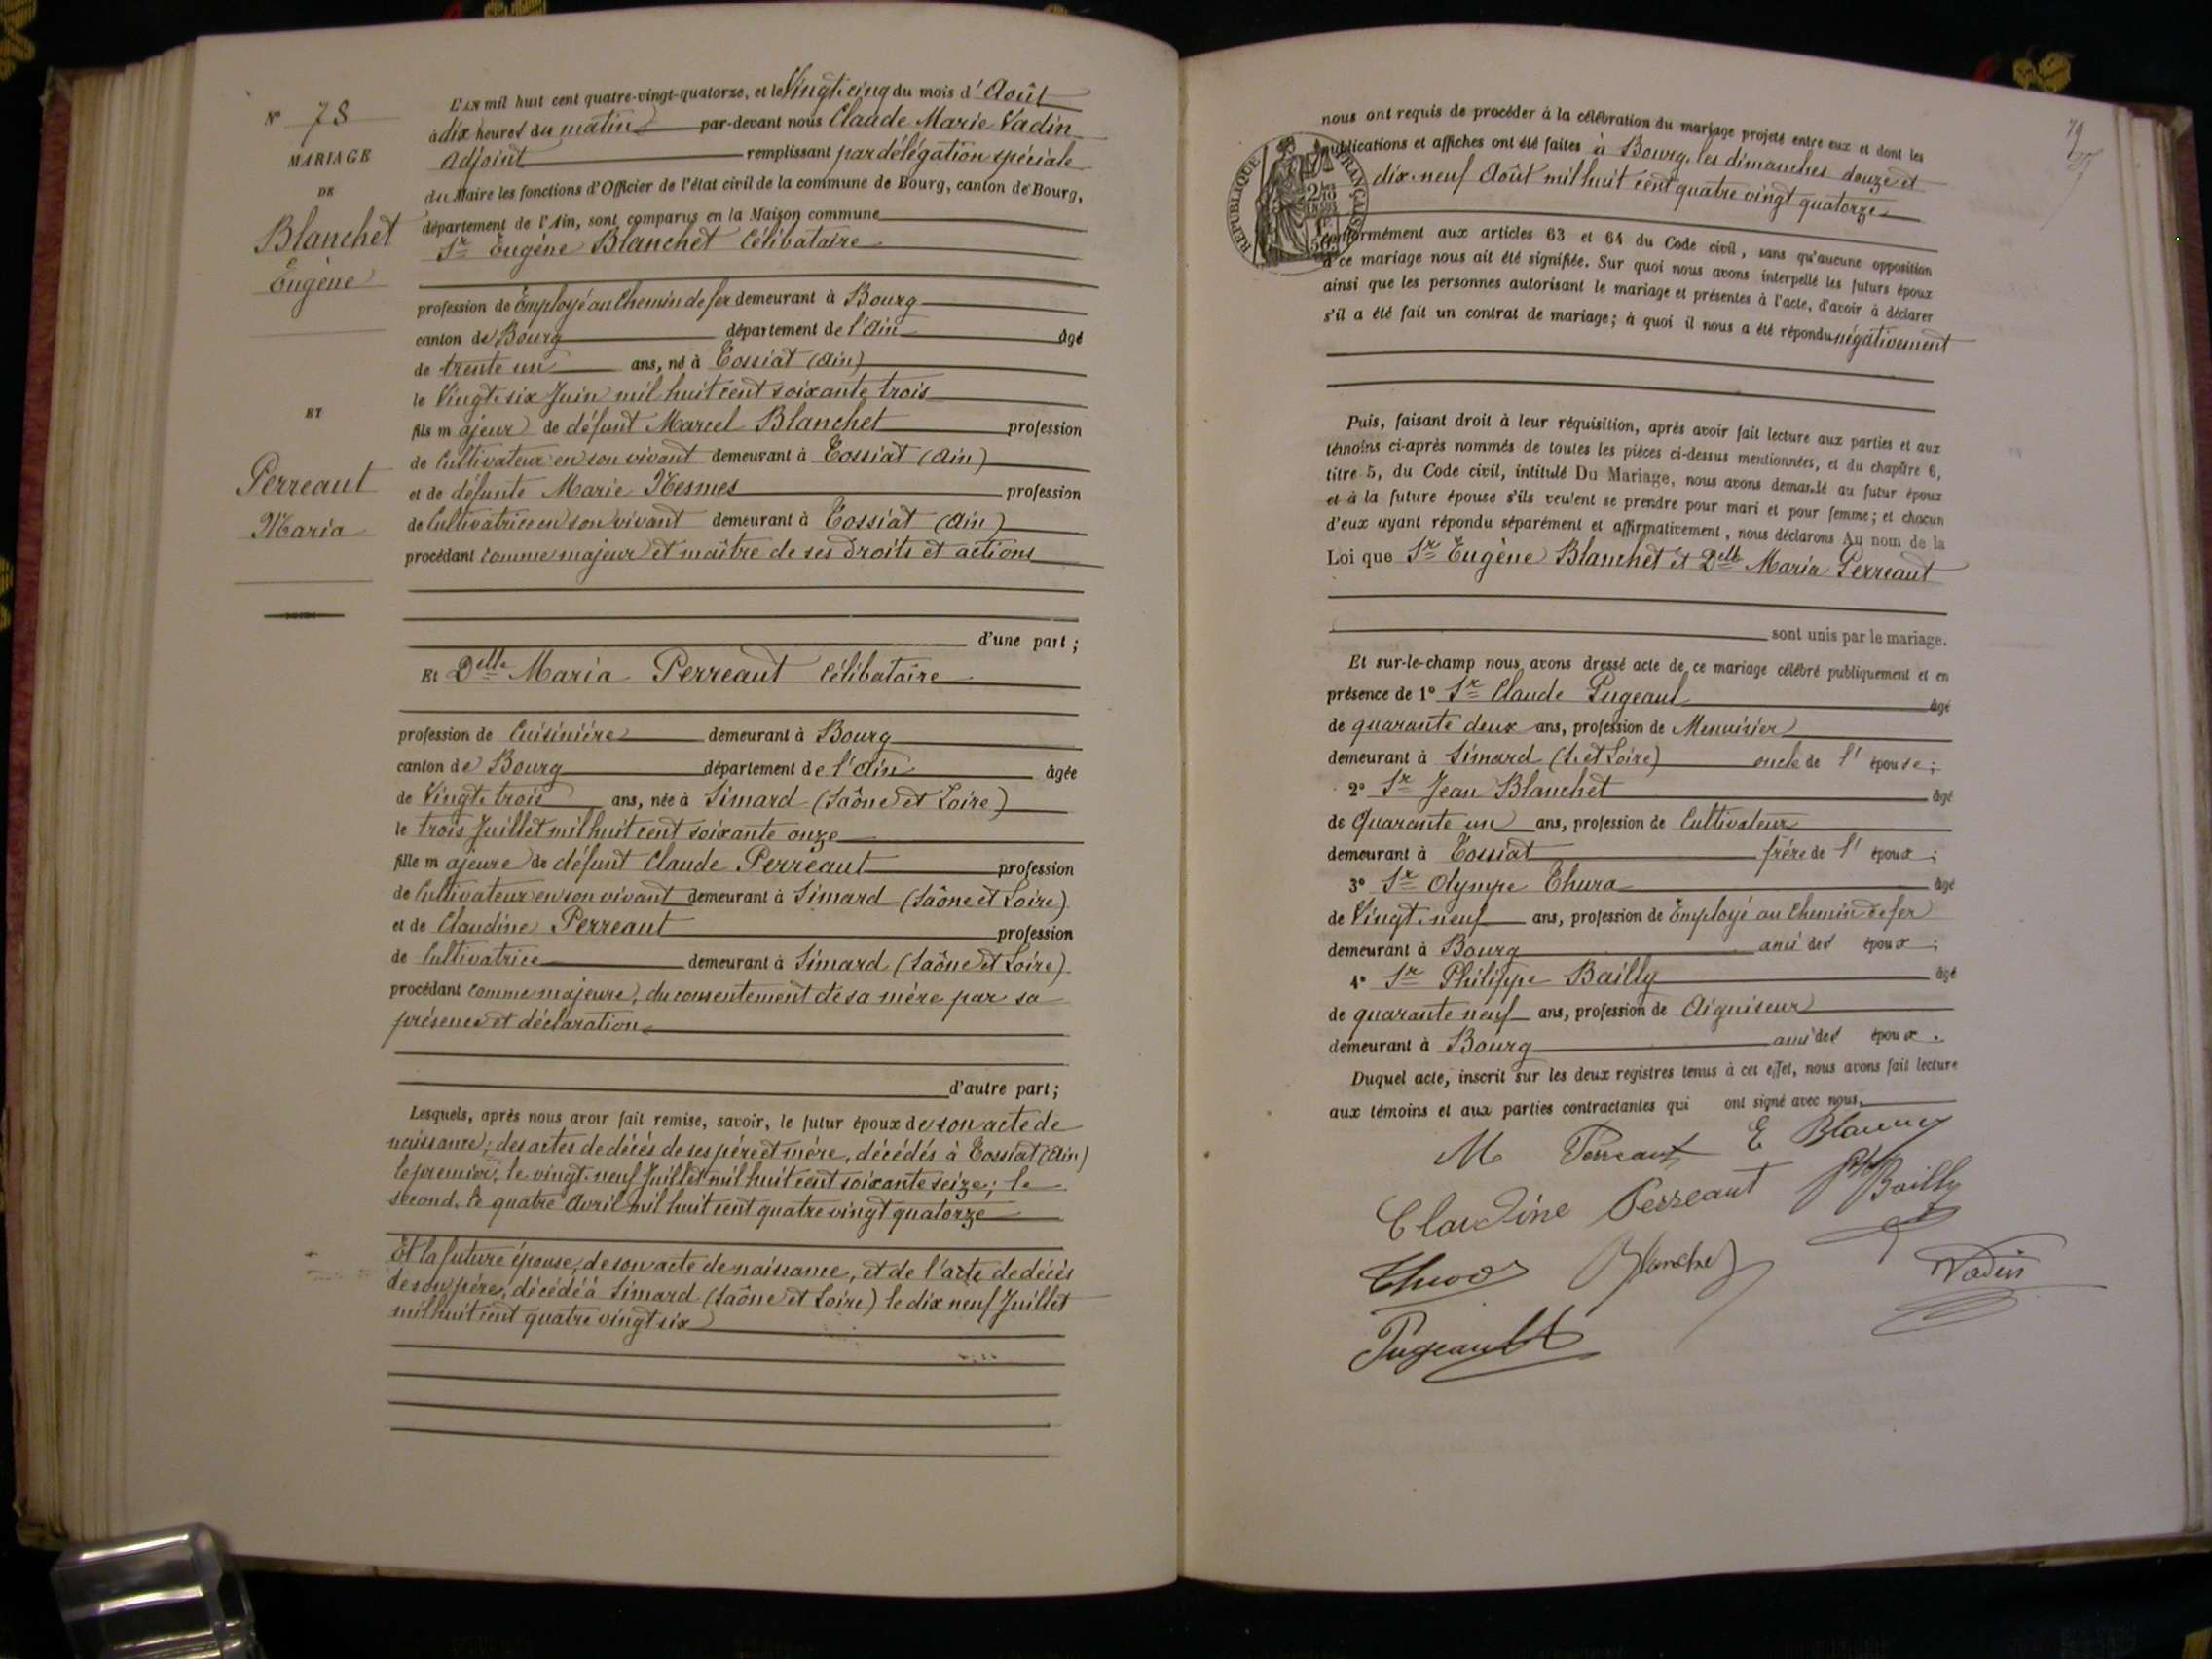 N° 78
MARIAGE
DE
Blanchet
Eugène
ET
Perreaut
Maria
L'AN mil huit cent quatre-vingt-quatorze, et le Vingt cinq du mois d'Août
à dix heures du matin par-devant nous Claude Marie Vadin
adjoint remplissant par délégation spéciale
du Maire les fonctions d'Officier de l'état civil de la commune de Bourg, canton de Bourg,
département de l'Ain, sont comparus en la Maison commune
Sr Eugène Blanchet Célibataire
profession de Employé au Chemin de fer demeurant à Bourg
canton de Bourg département de l'Ain âgé
de trente un ans, né à Tossiat (Ain)
le Vingt six Juin mil huit cent soixante trois
fils majeur de défunt Marcel Blanchet profession
de Cultivateur en son vivant demeurant à Tossiat (Ain)
et de défunte Marie Mesmes profession
de Cultivatrice en son vivant demeurant à Tossiat (Ain)
procédant comme majeur et maître de ses droits et actions
d'une part ;
Et Delle Maria Perreaut Célibataire
profession de Cuisinière demeurant à Bourg
canton de Bourg département de l'Ain âgée
de Vingt trois ans, née à Simard (Saône et Loire)
le trois Juillet mil huit cent soixante onze
fille majeure de défunt Claude Perreaut profession
de Cultivateur en son vivant demeurant à Simard (Saône et Loire)
et de Claudine Perreaut profession
de Cultivatrice demeurant à Simard (Saône et Loire)
procédant comme majeure, du consentement de sa mère par sa
présence et déclaration
d'autre part ;
Lesquels, après nous avoir fait remise, savoir, le futur époux de son acte de
naissance, des actes de décès de ses père et mère, décédés à Tossiat (Ain)
le premier, le vingt-neuf Juillet mil huit cent soixante seize ; le
second, le quatre Avril mil huit cent quatre vingt quatorze
Et la future épouse, de son acte de naissance, et de l'acte de décès
de son père, décédé à Simard (Saône et Loire) le dix neuf Juillet
mil huit cent quatre vingt six
79
nous ont requis de procéder à la célébration du mariage projeté entre eux et dont les
publications et affiches ont été faites à Bourg, les dimanches douze et
dix-neuf Août mil huit cent quatre vingt quatorze
RÉPUBLIQUE FRANÇAISE
2/10 EN SUS
conformément aux articles 63 et 64 du Code civil, sans qu'aucune opposition
à ce mariage nous ait été signifiée. Sur quoi nous avons interpellé les futurs époux
ainsi que les personnes autorisant le mariage et présentes à l'acte, d'avoir à déclarer
s'il a été fait un contrat de mariage; à quoi il nous a été répondu négativement
Puis, faisant droit à leur réquisition, après avoir fait lecture aux parties et aux
témoins ci-après nommés de toutes les pièces ci-dessus mentionnées, et du chapitre 6,
titre 5, du Code civil, intitulé Du Mariage, nous avons demandé au futur époux
et à la future épouse s'ils veulent se prendre pour mari et pour femme; et chacun
d'eux ayant répondu séparément et affirmativement, nous déclarons Au nom de la
Loi que Sr Eugène Blanchet et Delle Maria Perreaut
sont unis par le mariage.
Et sur-le-champ nous avons dressé acte de ce mariage célébré publiquement et en
présence de 1° Sr Claude Pugeaut âgé
de quarante deux ans, profession de Menuisier
demeurant à Simard (S. et Loire) oncle de l'épouse ;
2° Sr Jean Blanchet âgé
de Quarante un ans, profession de Cultivateur
demeurant à Tossiat frère de l'époux ;
3° Sr Olympe Thura âgé
de Vingt-neuf ans, profession de Employé au Chemin de fer
demeurant à Bourg ami des époux ;
4° Sr Philippe Bailly âgé
de quarante neuf ans, profession de Aiguiseur
demeurant à Bourg ami des époux .
Duquel acte, inscrit sur les deux registres tenus à cet effet, nous avons fait lecture
aux témoins et aux parties contractantes qui ont signé avec nous.
M Perreaut E Blanchet
Claudine Perreaut Ph Bailly
Thura Blanchet Vadin
Pugeault